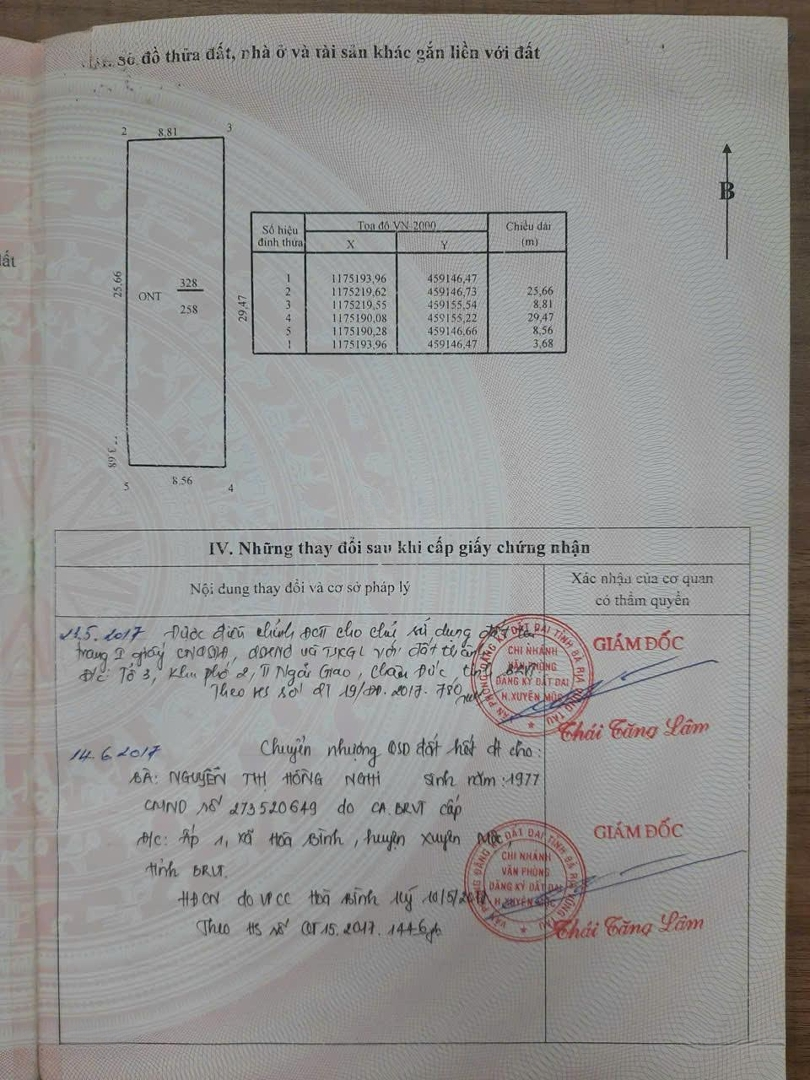 Sơ đồ thửa đất, nhà ở và tài sản khác gắn liền với đất
2 8.81 3
B
ất
25,66
ONT 328
258
29,47
3,68
5 8.56 4
Số hiệu đỉnh thửa Tọa độ VN-2000 Chiều dài (m)
X Y
1 1175193,96 459146,47
2 1175219,62 459146,73 25,66
3 1175219,55 459155,54 8,81
4 1175190,08 459155,22 29,47
5 1175190,28 459146,66 8,56
1 1175193,96 459146,47 3,68
IV. Những thay đổi sau khi cấp giấy chứng nhận
Nội dung thay đổi và cơ sở pháp lý
Xác nhận của cơ quan
có thẩm quyền
.5.2017 Được điều chỉnh ĐCTT cho chủ sử dụng đất tên
trang I giấy CNQSDĐ, và TSKGL với đất thành
Đ/c: Tổ 3, Khu phố 2, TT Ngãi Giao, Châu Đức, tỉnh BRVT
Theo HS số 2017. 780
VĂN PHÒNG ĐĂNG KÝ ĐẤT ĐAI TỈNH BÀ RỊA VŨNG TÀU
CHI NHÁNH
VĂN PHÒNG
ĐĂNG KÝ ĐẤT ĐAI
H.XUYÊN MỘC
GIÁM ĐỐC
Thái Tăng Lâm
14.6.2017 Chuyển nhượng QSD đất hết đt cho:
BÀ: NGUYỄN THỊ HỒNG NGHI sinh năm: 1977
CMND số 273520649 do CA.BRVT cấp
Đ/c: Ấp 1, xã Hoà Bình, huyện Xuyên Mộc,
tỉnh BRVT.
HĐCN do VPCC Hoà Bình ký 10/5/2017
Theo HS số CT15.2017.1446
VĂN PHÒNG ĐĂNG KÝ ĐẤT ĐAI TỈNH BÀ RỊA VŨNG TÀU
CHI NHÁNH
VĂN PHÒNG
ĐĂNG KÝ ĐẤT ĐAI
H.XUYÊN MỘC
GIÁM ĐỐC
Thái Tăng Lâm